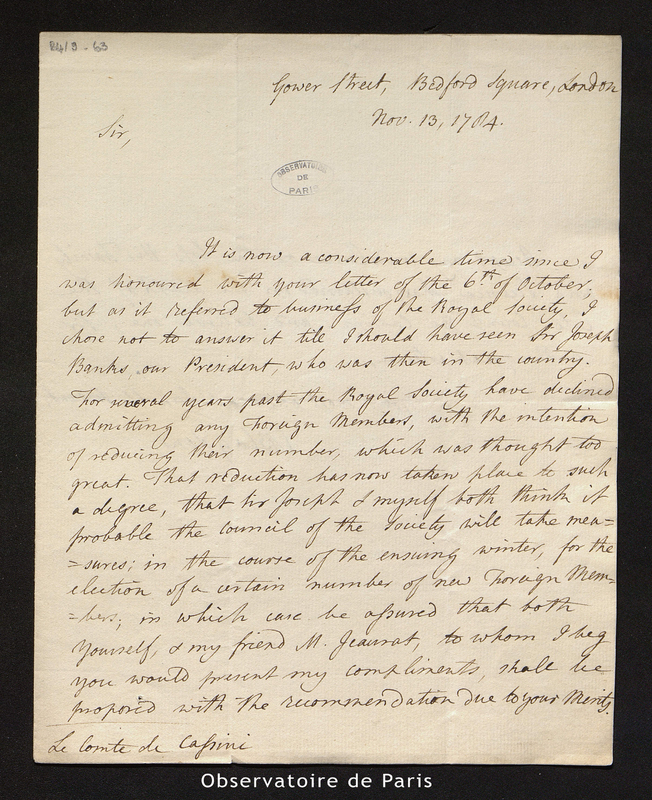 B4/9 - 63
Gower Street, Bedford Square, London
Nov. 13, 1784.
Sir,
OBSERVATOIRE
DE
PARIS
It is now a considerable time since I
was honoured with your letter of the 6th of October;
but as it referred to business of the Royal Society, I
chose not to answer it till I should have seen Sir Joseph
Banks, our President, who was then in the country.
For several years past the Royal Society have declined
admitting any Foreign Members, with the intention
of reducing their number, which was thought too
great. That reduction has now taken place to such
a degree, that Sir Joseph & myself both think it
probable the council of the Society will take mea=
=sures; in the course of the ensuing winter, for the
election of a certain number of new Foreign Mem=
=bers; in which case be assured that both
Yourself, & my friend M. Jeaurat, to whom I beg
you would present my compliments, shall be
proposed with the recommendation due to your Merits.
Le Comte de Cassini
Observatoire de Paris